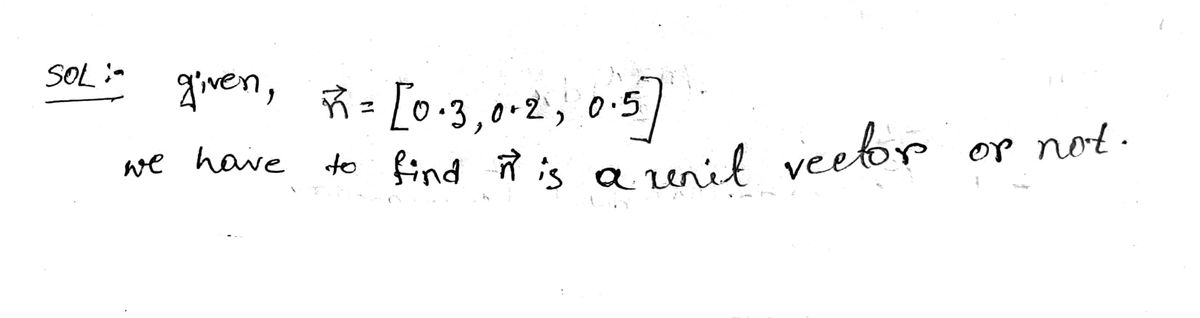 SOL :- given, n⃗ = [0.3, 0.2, 0.5]
we have to find n⃗ is a unit vector or not.